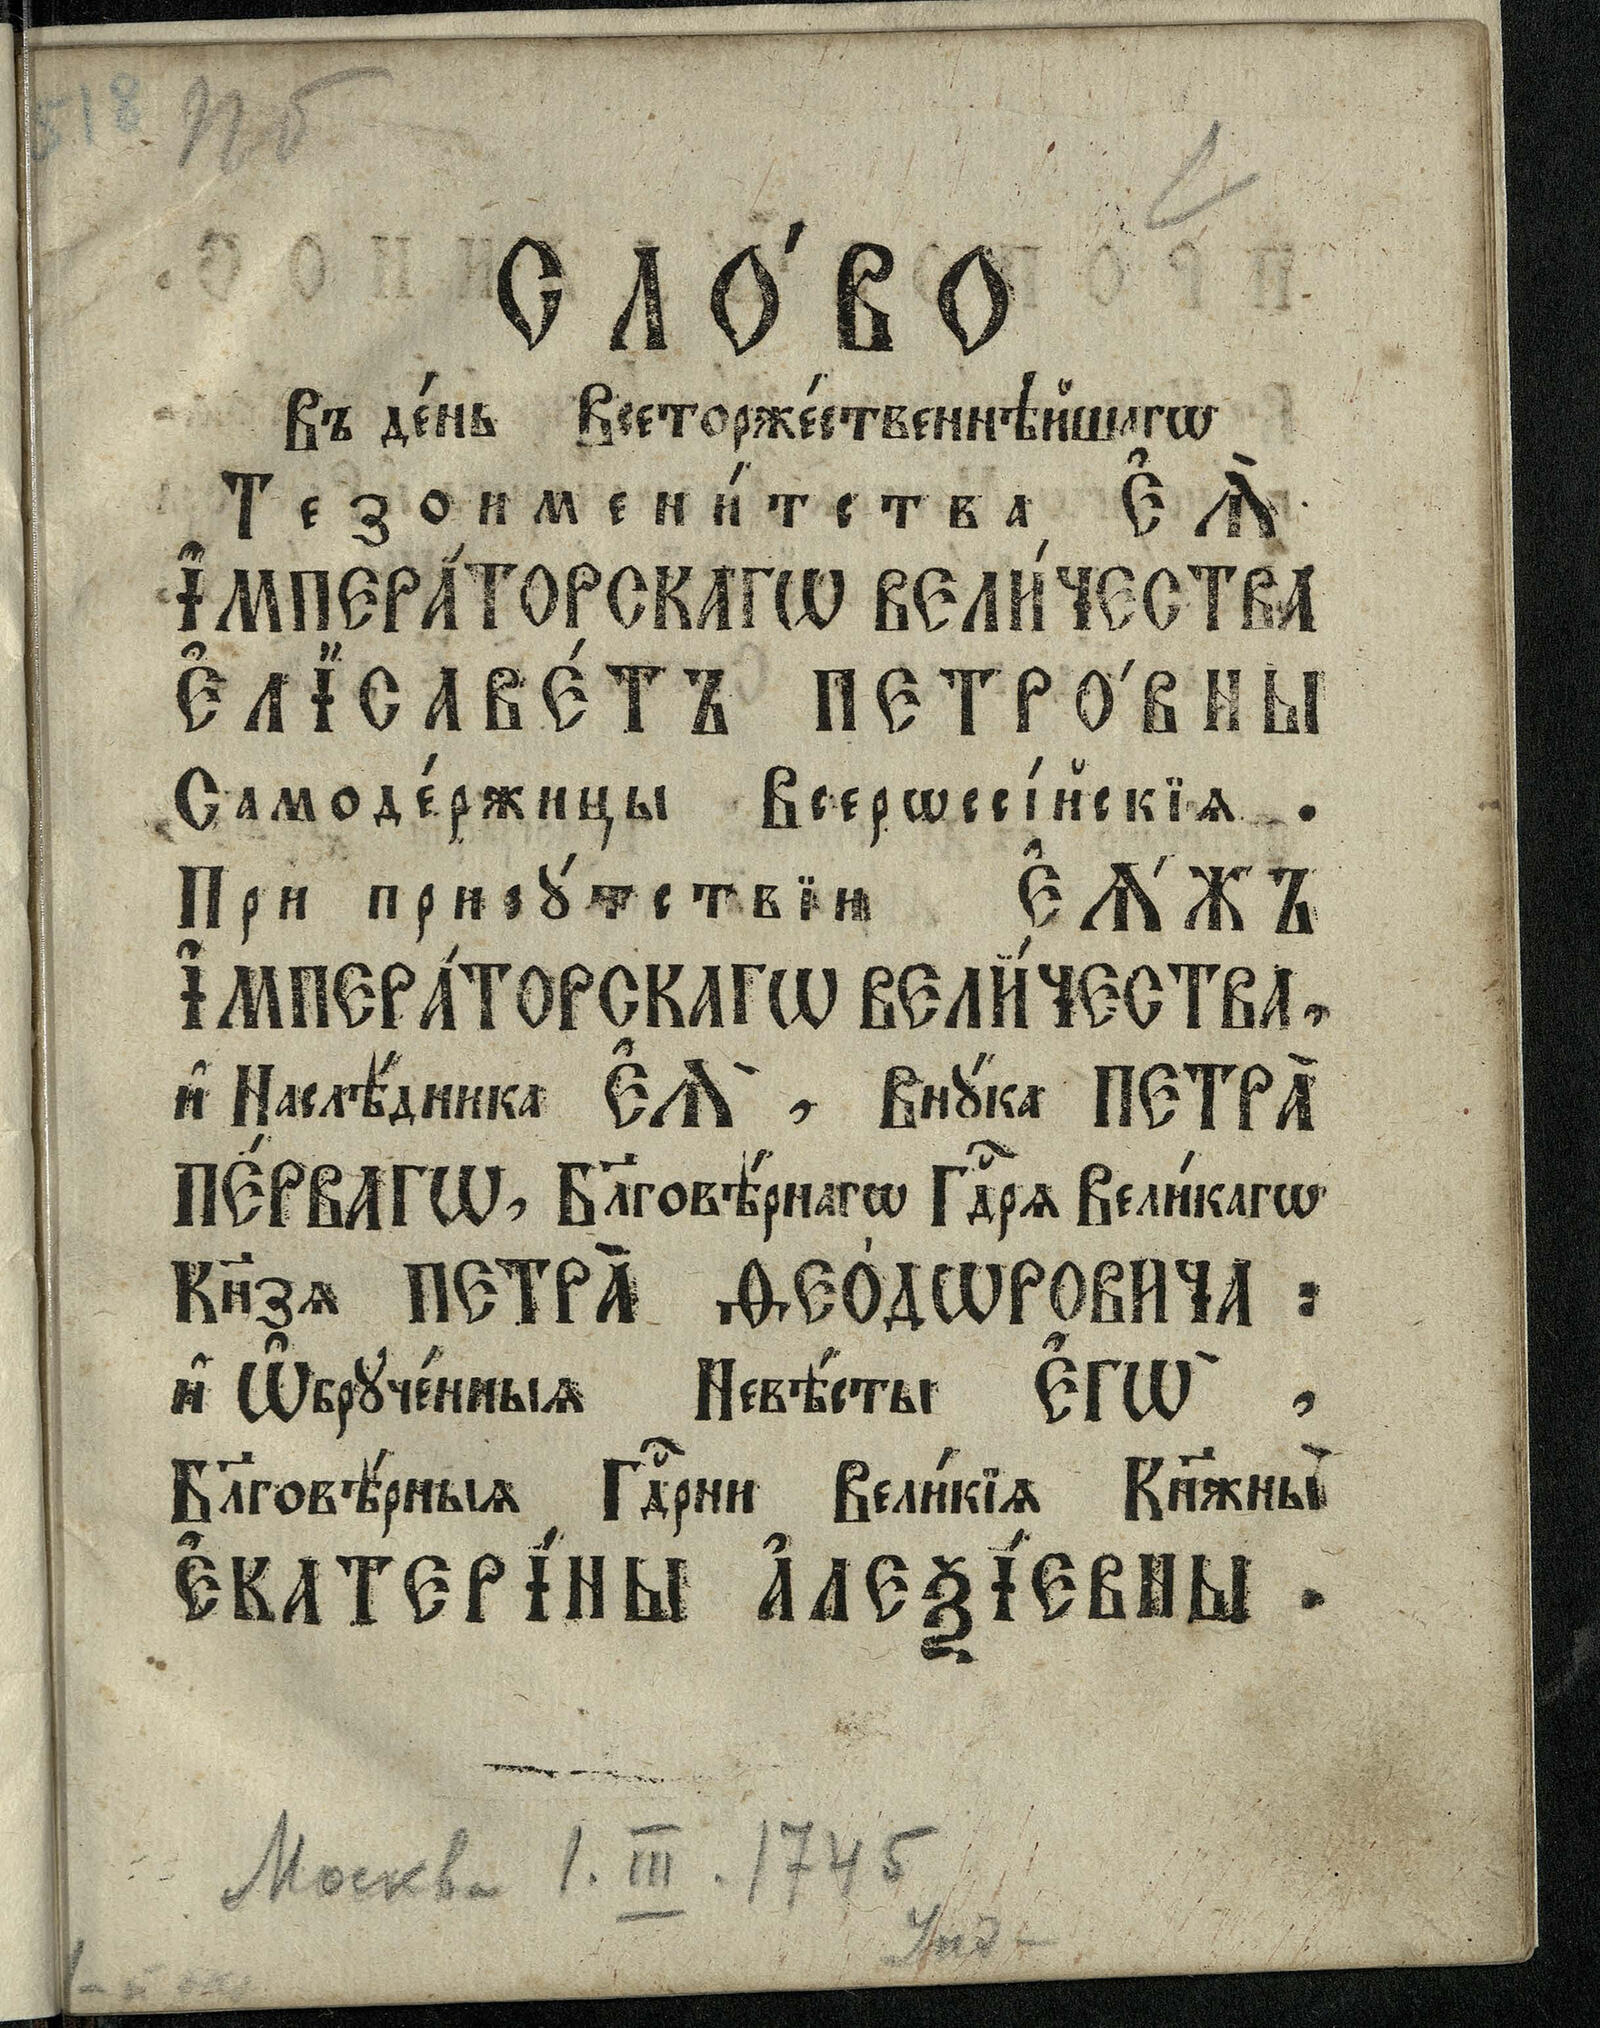 518 № б
СЛО́ВО
Въ де́нь Всеторже́ственнѣ́йшагѡ
Тезоимени́тства Є҆Ѧ̀
І҆МПЕРА́ТОРСКАГѠ ВЕЛИ́ЧЕСТВА
Є҆ЛЇСАВЕ́ТЪ ПЕТРО́ВНЫ
Самоде́ржицы Всерѡссі́йскїѧ .
При прису́тствїи Є҆Ѧ́ЖЪ
І҆МПЕРА́ТОРСКАГѠ ВЕЛИ́ЧЕСТВА,
и҆ Наслѣ́дника Є҆Ѧ̀ , Вну́ка ПЕТРА̀
ПЕ́РВАГѠ, Бл҃говѣ́рнагѡ Гдⷭ҇рѧ Вели́кагѡ
Кн҃зѧ ПЕТРА̀ Ѳ̾ЕО́ДѠРОВИЧА :
и҆ Ѡ҆бруче́нныѧ Невѣ́сты Є҆ГѠ̀ ,
Бл҃говѣ́рныѧ Гдⷭ҇рни Вели́кїѧ Кн҃жны̀
Є҆КАТЕРІ́НЫ А҆ЛЕѮІ́ЕВНЫ .
Москва 1. III . 1745